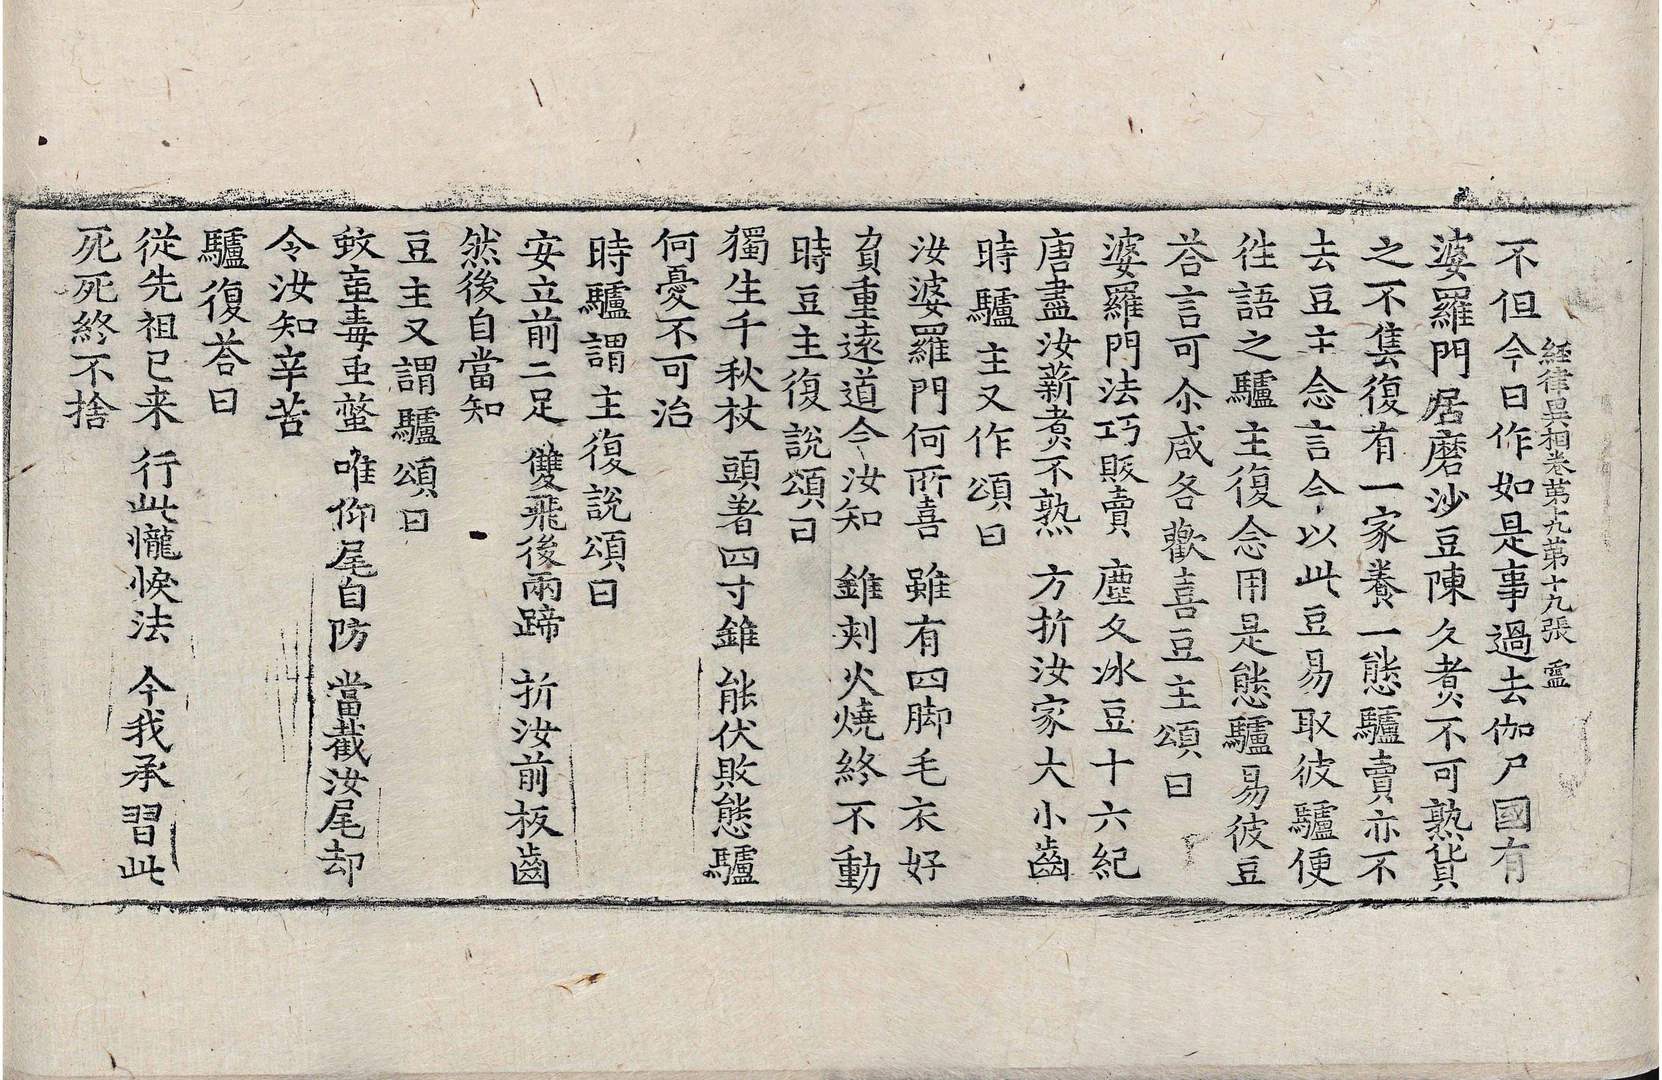 経律異相卷第十九第十九張 靈
不但今日作如是事過去伽尸國有
婆羅門居磨沙豆陳久煑不可熟貨
之不售復有一家養一態驢賣亦不
去豆主念言今以此豆易取彼驢便
往語之驢主復念用是態驢易彼豆
荅言可尒咸各歡喜豆主頌曰
婆羅門法巧販賣 塵久冰豆十六紀
唐盡汝薪煑不熟 方折汝家大小齒
時驢主又作頌曰
汝婆羅門何所喜 雖有四脚毛衣好
負重遠道今汝知 錐刺火燒終不動
時豆主復說頌曰
獨生千秋杖 頭著四寸錐 能伏敗態驢
何憂不可治
時驢謂主復說頌曰
安立前二足 雙飛後兩蹄 折汝前板齒
然後自當知
豆主又謂驢頌曰
蚊䖝毒䖝螫 唯仰尾自防 當截汝尾却
令汝知辛苦
驢復荅曰
從先祖已来 行此𢤱悷法 今我承習此
死死終不捨